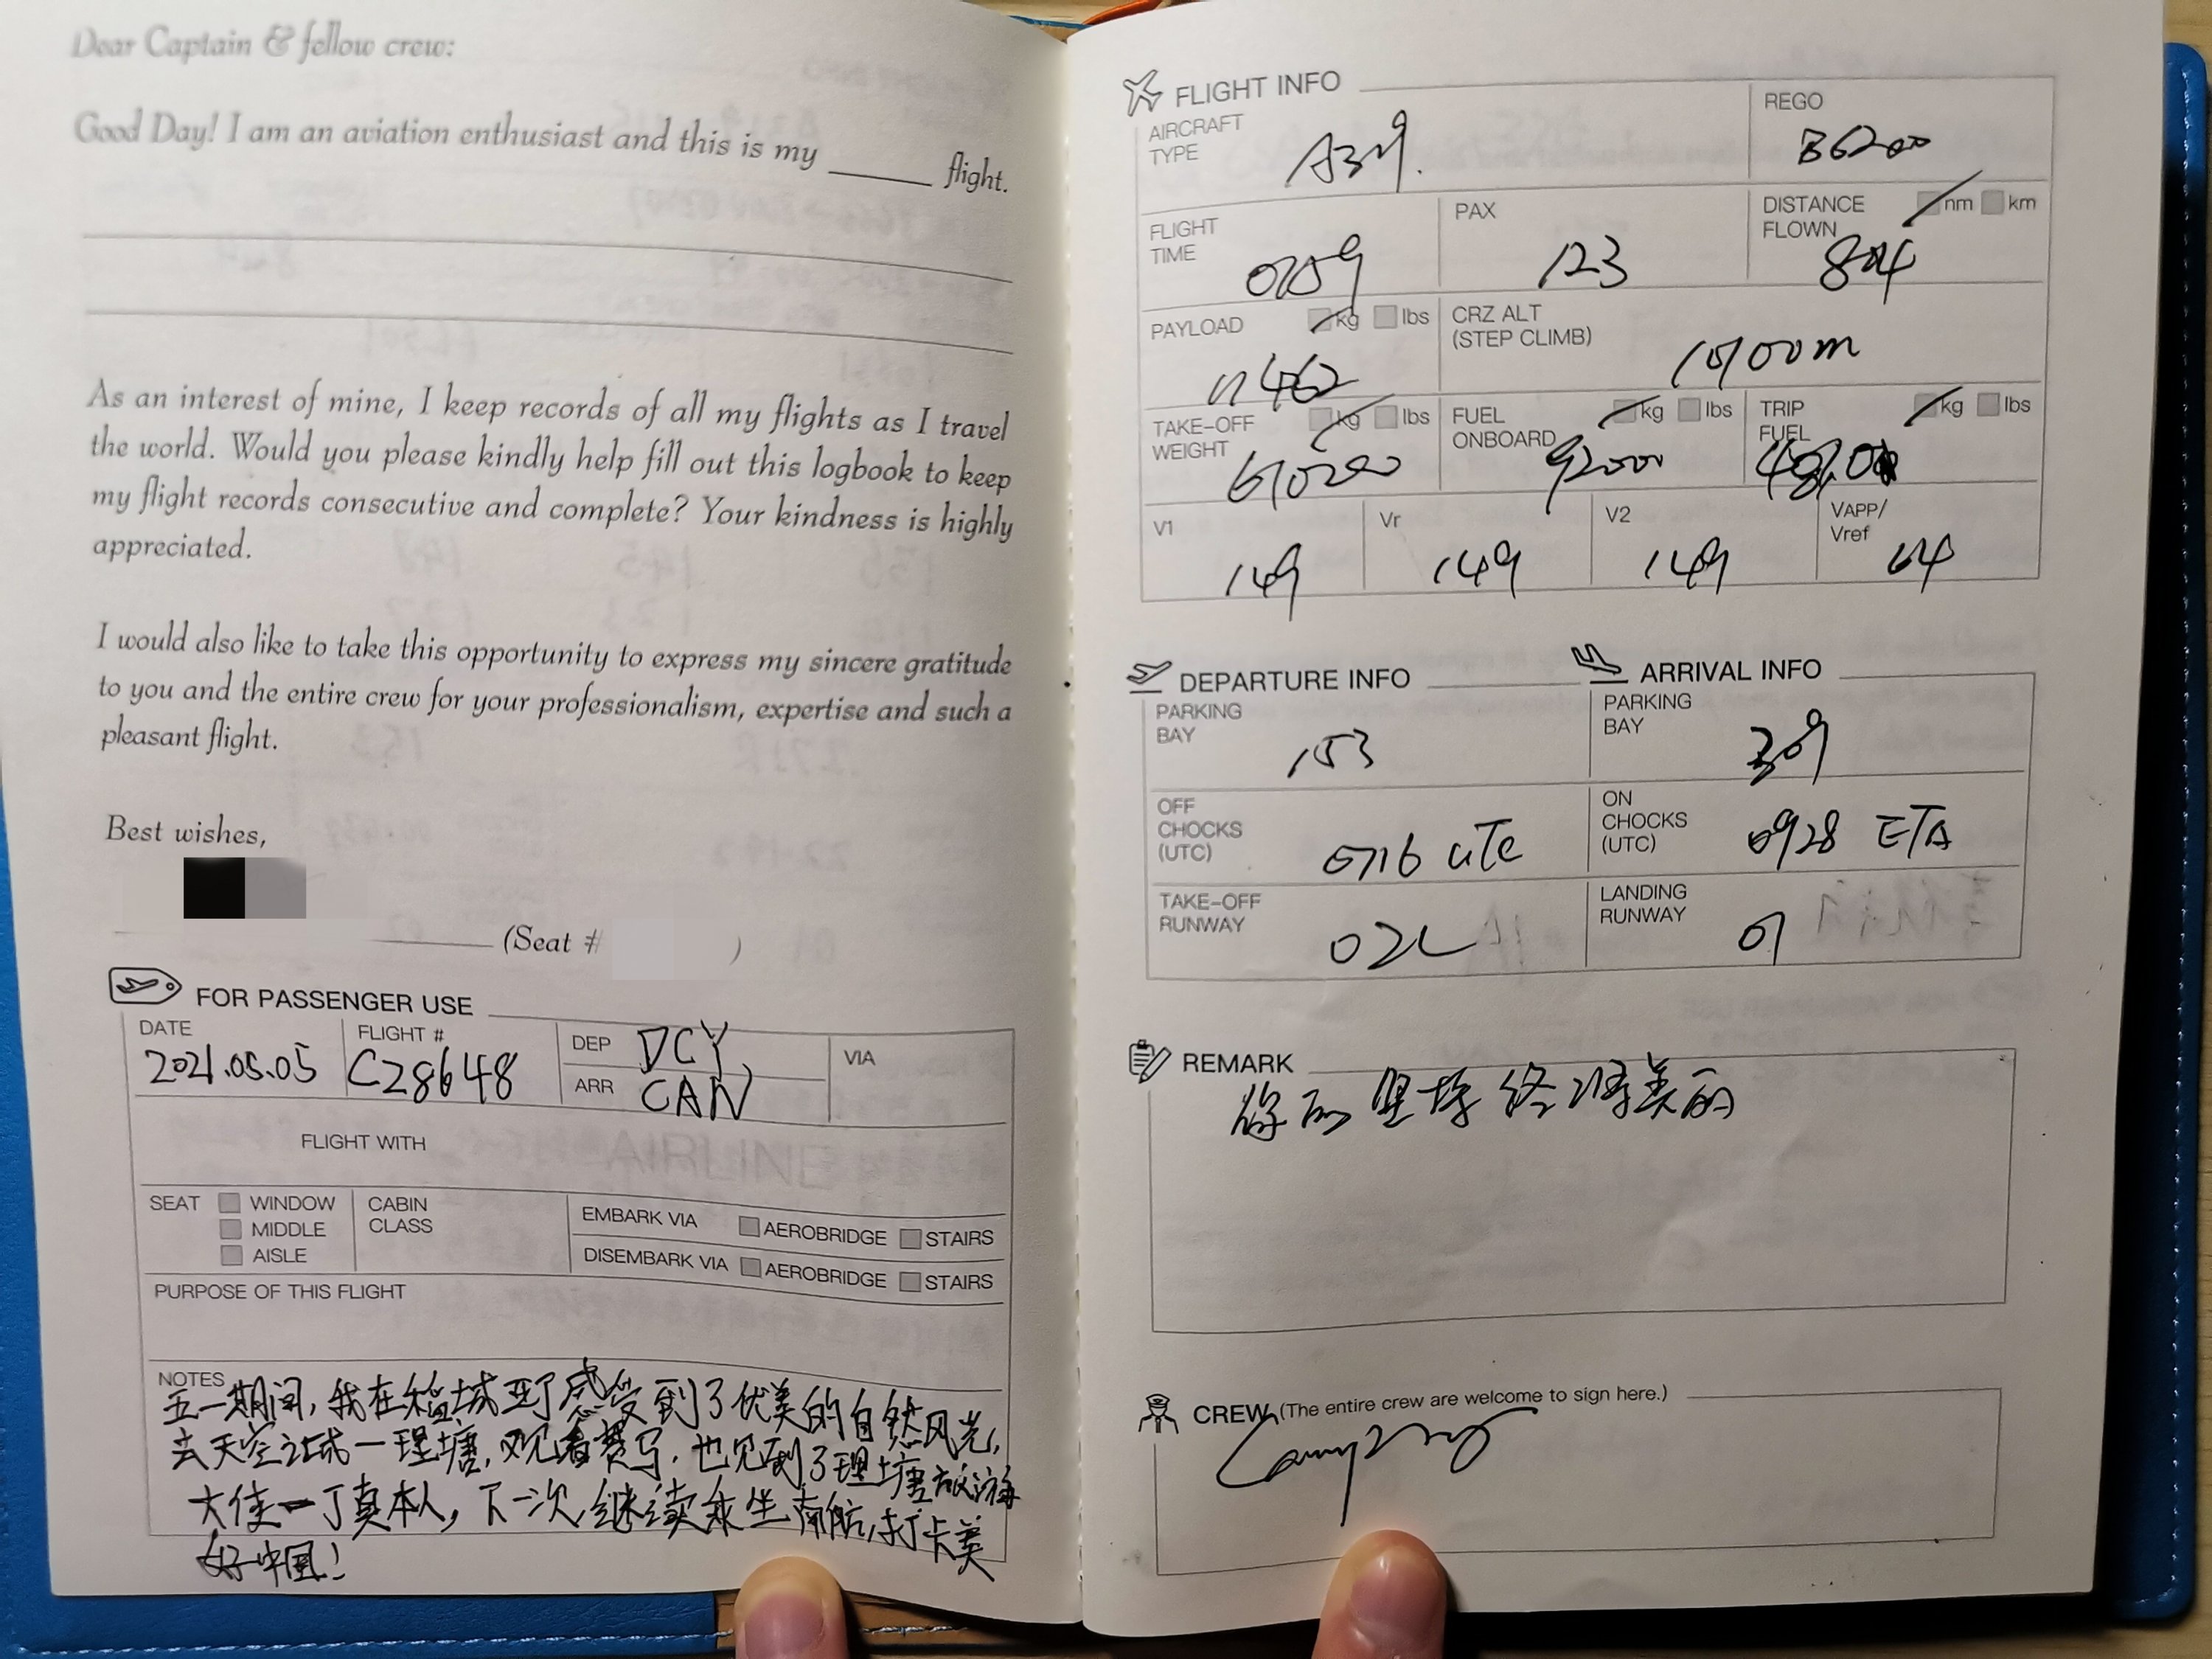 Dear Captain & fellow crew:
Good Day! I am an aviation enthusiast and this is my ______ flight.
As an interest of mine, I keep records of all my flights as I travel
the world. Would you please kindly help fill out this logbook to keep
my flight records consecutive and complete? Your kindness is highly
appreciated.
I would also like to take this opportunity to express my sincere gratitude
to you and the entire crew for your professionalism, expertise and such a
pleasant flight.
Best wishes,
(Seat # )
FOR PASSENGER USE
DATE
2021.05.05
FLIGHT #
CZ8648
DEP DCY
ARR CAN
VIA
FLIGHT WITH
SEAT
WINDOW
MIDDLE
AISLE
CABIN
CLASS
EMBARK VIA AEROBRIDGE STAIRS
DISEMBARK VIA AEROBRIDGE STAIRS
PURPOSE OF THIS FLIGHT
NOTES
五一期间,我在稻城亚丁感受到了优美的自然风光,
去天空之城一理塘,观看赛马,也见到了理塘旅游
大使一丁真本人,下一次,继续乘坐南航,打卡美
好中国!
FLIGHT INFO
AIRCRAFT
TYPE
A319
REGO
B6200
FLIGHT
TIME
0159
PAX
123
DISTANCE
FLOWN
nm km
804
PAYLOAD kg lbs
11462
CRZ ALT
(STEP CLIMB)
10100m
TAKE-OFF
WEIGHT
kg lbs
FUEL
ONBOARD
kg lbs
TRIP
FUEL
kg lbs
V1
149
Vr
149
V2
149
VAPP/
Vref
DEPARTURE INFO
PARKING
BAY
153
OFF
CHOCKS
(UTC)
0716 UTC
TAKE-OFF
RUNWAY
02L
ARRIVAL INFO
PARKING
BAY
309
ON
CHOCKS
(UTC)
0928 ETA
LANDING
RUNWAY
01
REMARK
你的坚持终将美丽
CREW (The entire crew are welcome to sign here.)